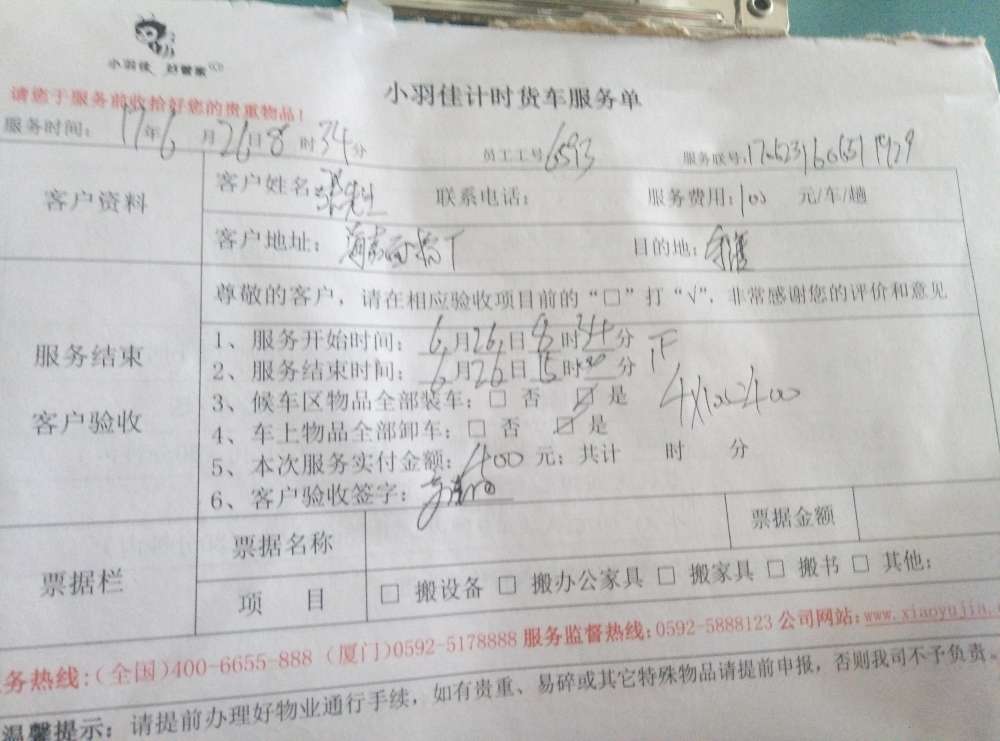 小羽佳 赵管家
小羽佳计时货车服务单
请您于服务前收拾好您的贵重物品!
服务时间: 17年6月26日8时34分 员工工号 6593 服务联号:
客户资料 客户姓名: 张先生 联系电话: 服务费用: 100 元/车/趟
客户地址: 目的地:
尊敬的客户，请在相应验收项目前的“□”打“√”，非常感谢您的评价和意见
服务结束
客户验收
1、服务开始时间: 6月26日8时34分
2、服务结束时间: 6月26日15时30分
3、候车区物品全部装车: □ 否 ☑ 是
4×100=400
4、车上物品全部卸车: □ 否 ☑ 是
5、本次服务实付金额: 400 元; 共计 时 分
6、客户验收签字:
票据栏 票据名称 票据金额
项 目 □ 搬设备 □ 搬办公家具 □ 搬家具 □ 搬书 □ 其他:
务热线:(全国)400-6655-888 (厦门)0592-5178888 服务监督热线:0592-5888123 公司网站:www.xiaoyujia.
温馨提示: 请提前办理好物业通行手续，如有贵重、易碎或其它特殊物品请提前申报，否则我司不予负责。